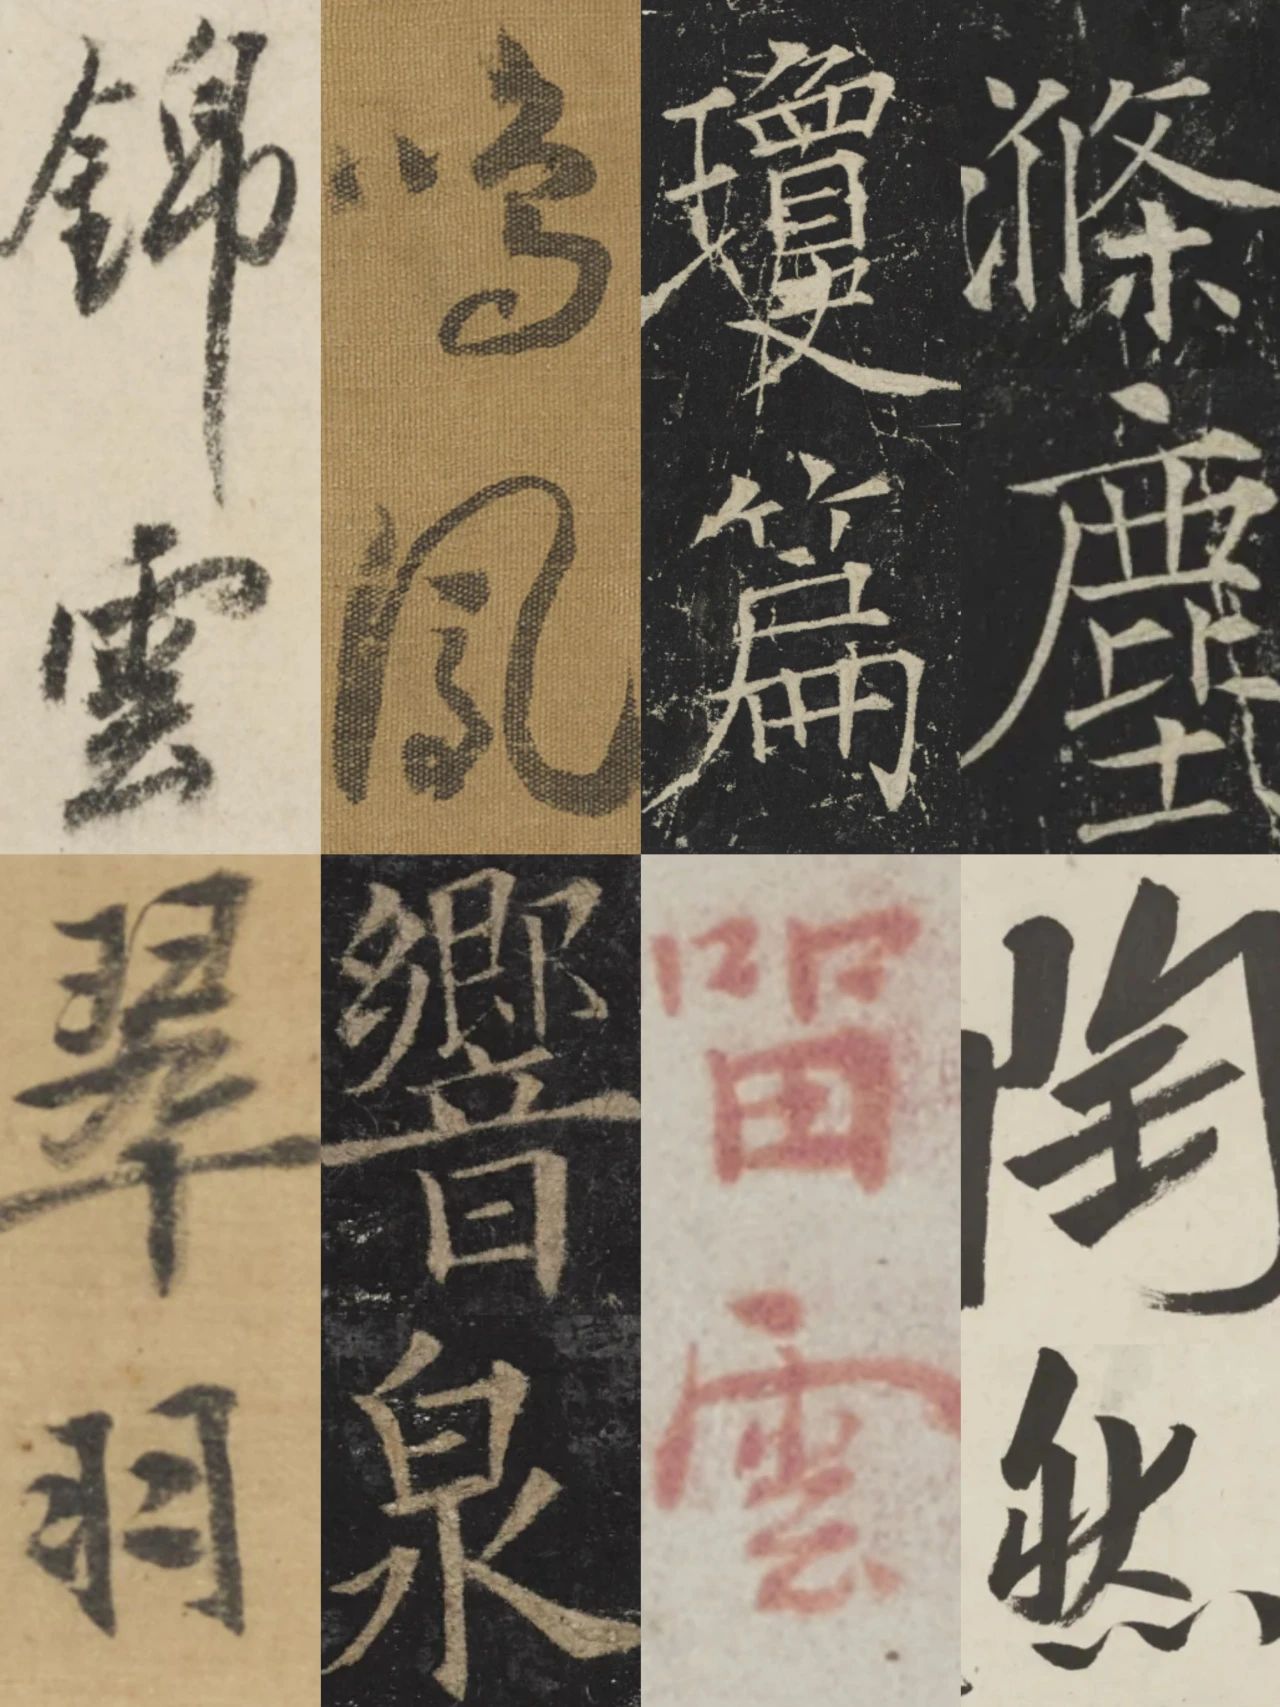 錦雲
鳴鳳
瓊篇
滌塵
翠羽
響泉
留雲
陶然